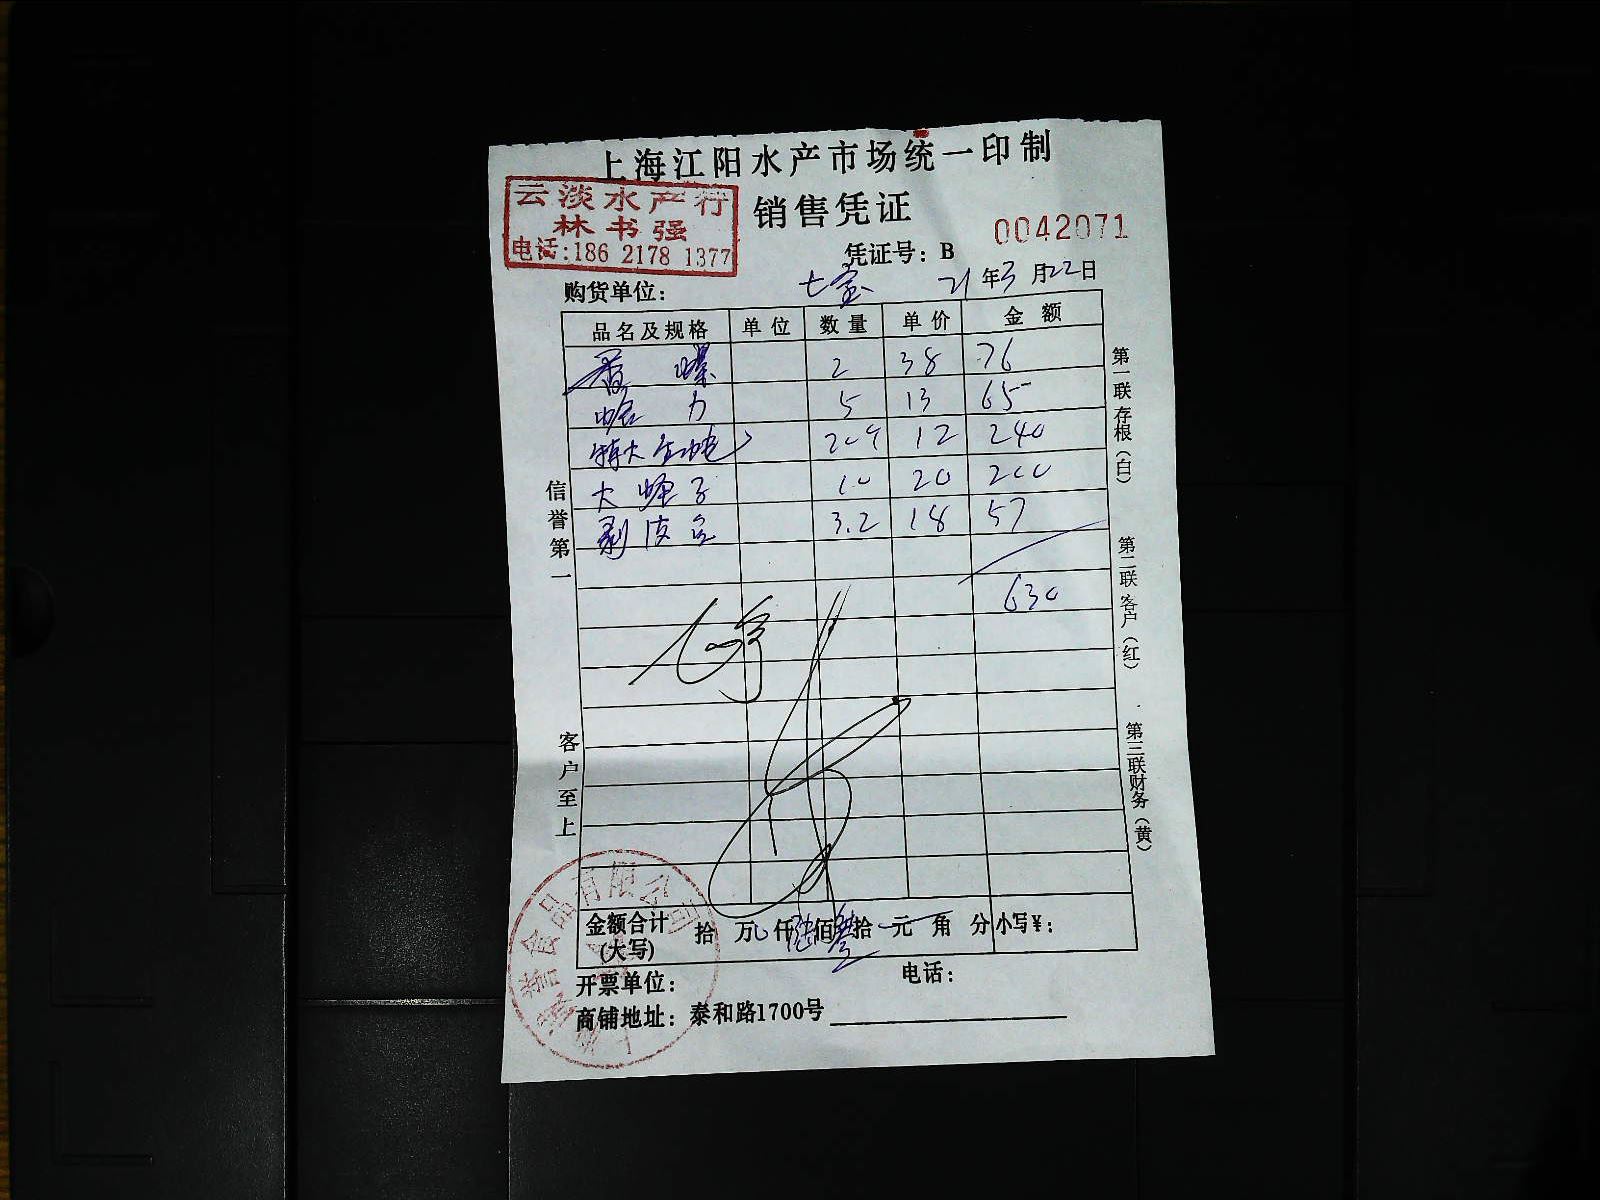 上海江阳水产市场统一印制
云淡水产行
林书强
电话:186 2178 1377
销售凭证
0042071
凭证号：B
购货单位： 七宝 21年3月22日
品名及规格 单位 数量 单价 金额
香螺 2 38 76
蛤力 5 13 65
特大生蚝 20个 12 240
大蛏子 10 20 200
剥皮鱼 3.2 18 57
630
信誉第一
客户至上
第一联存根（白）
第二联客户（红）
第三联财务（黄）
金额合计（大写） 拾 万 仟 陆佰叁拾 元 角 分 小写¥：
开票单位： 电话：
商铺地址：泰和路1700号
食品有限公司